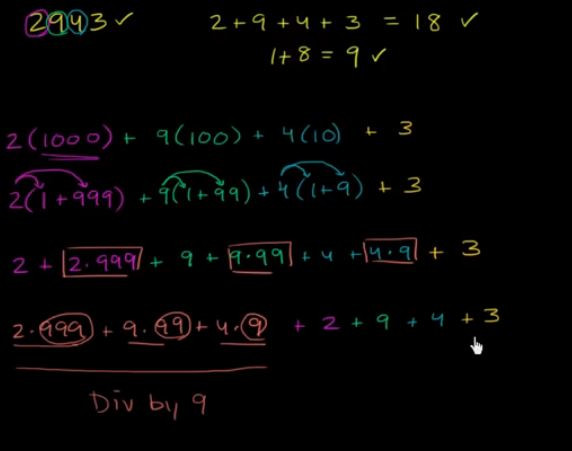 2943 ✓ 2 + 9 + 4 + 3 = 18 ✓
1 + 8 = 9 ✓
2(1000) + 9(100) + 4(10) + 3
2(1 + 999) + 9(1 + 99) + 4(1 + 9) + 3
2 + 2·999 + 9 + 9·99 + 4 + 4·9 + 3
2·999 + 9·99 + 4·9 + 2 + 9 + 4 + 3
Div by 9